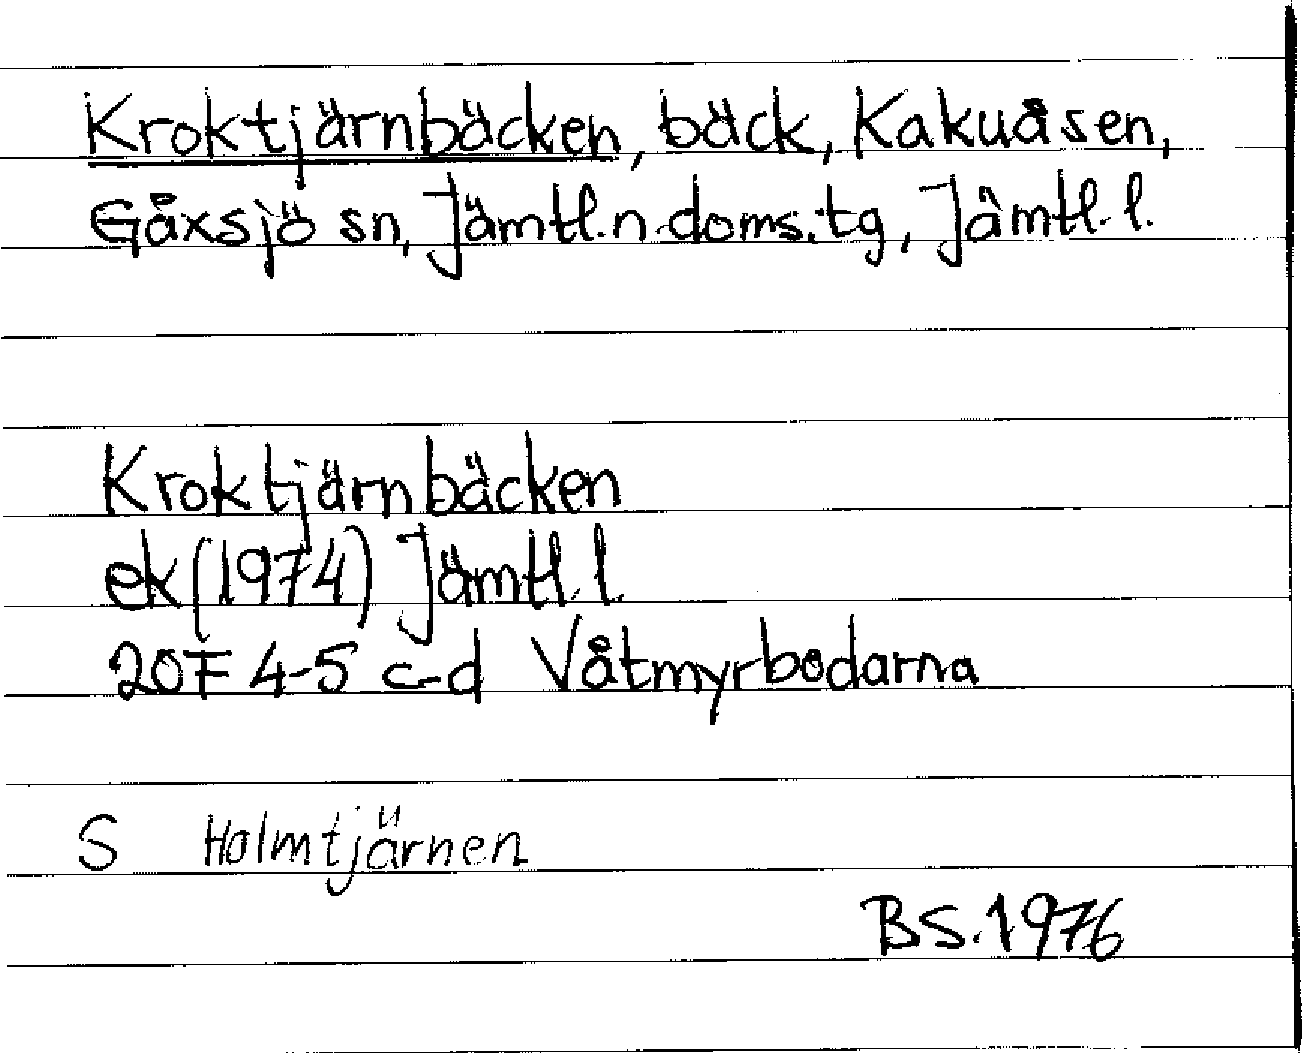 Kroktjärnbäcken, bäck, Kakuåsen,
Gåxsjö sn, Jämtl.n.doms.tg, Jämtl.l.
Kroktjärnbäcken
ek(1974) Jämtl.l.
20F 4-5 c-d Våtmyrbodarna
S Holmtjärnen
BS.1976